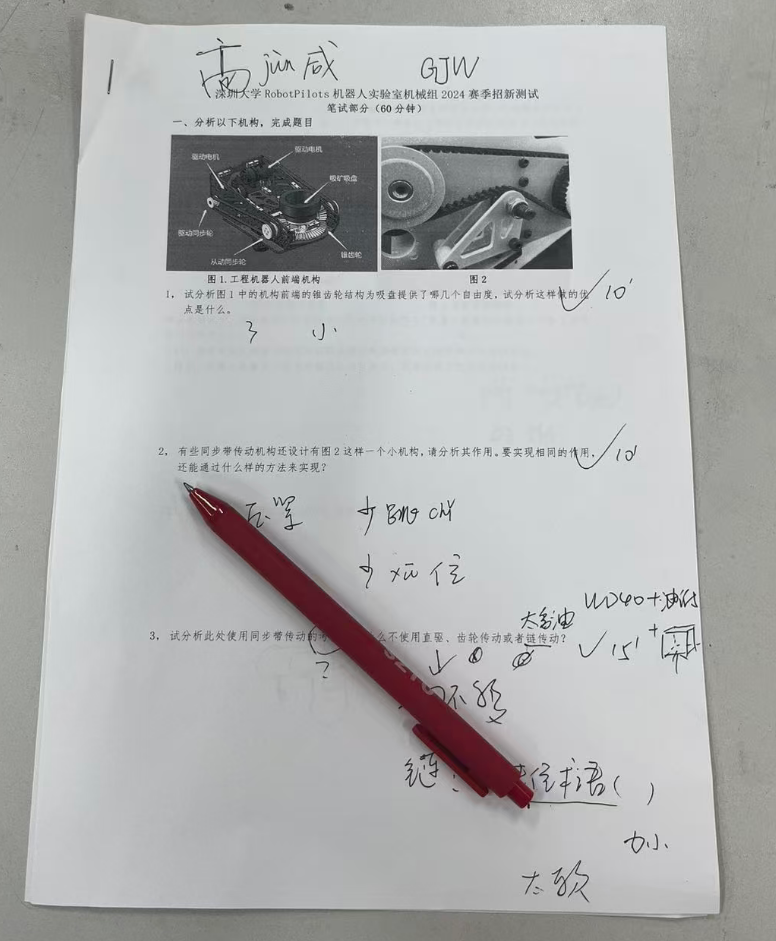 高 jùn 成 GJW
深圳大学 RobotPilots 机器人实验室机械组 2024 赛季招新测试
笔试部分（60 分钟）
一、分析以下机构，完成题目
驱动电机
驱动电机
吸矿吸盘
驱动同步轮
从动同步轮
锥齿轮
图 1.工程机器人前端机构
图 2
1， 试分析图 1 中的机构前端的锥齿轮结构为吸盘提供了哪几个自由度，试分析这样做的优
点是什么。
10'
3 小
2， 有些同步带传动机构还设计有图 2 这样一个小机构，请分析其作用。要实现相同的作用，
还能通过什么样的方法来实现？
10'
少
少 位
WD40+
3， 试分析此处使用同步带传动的 么不使用直驱、齿轮传动或者链传动？
15' +
?
不
链：
术语( )
力小
太软